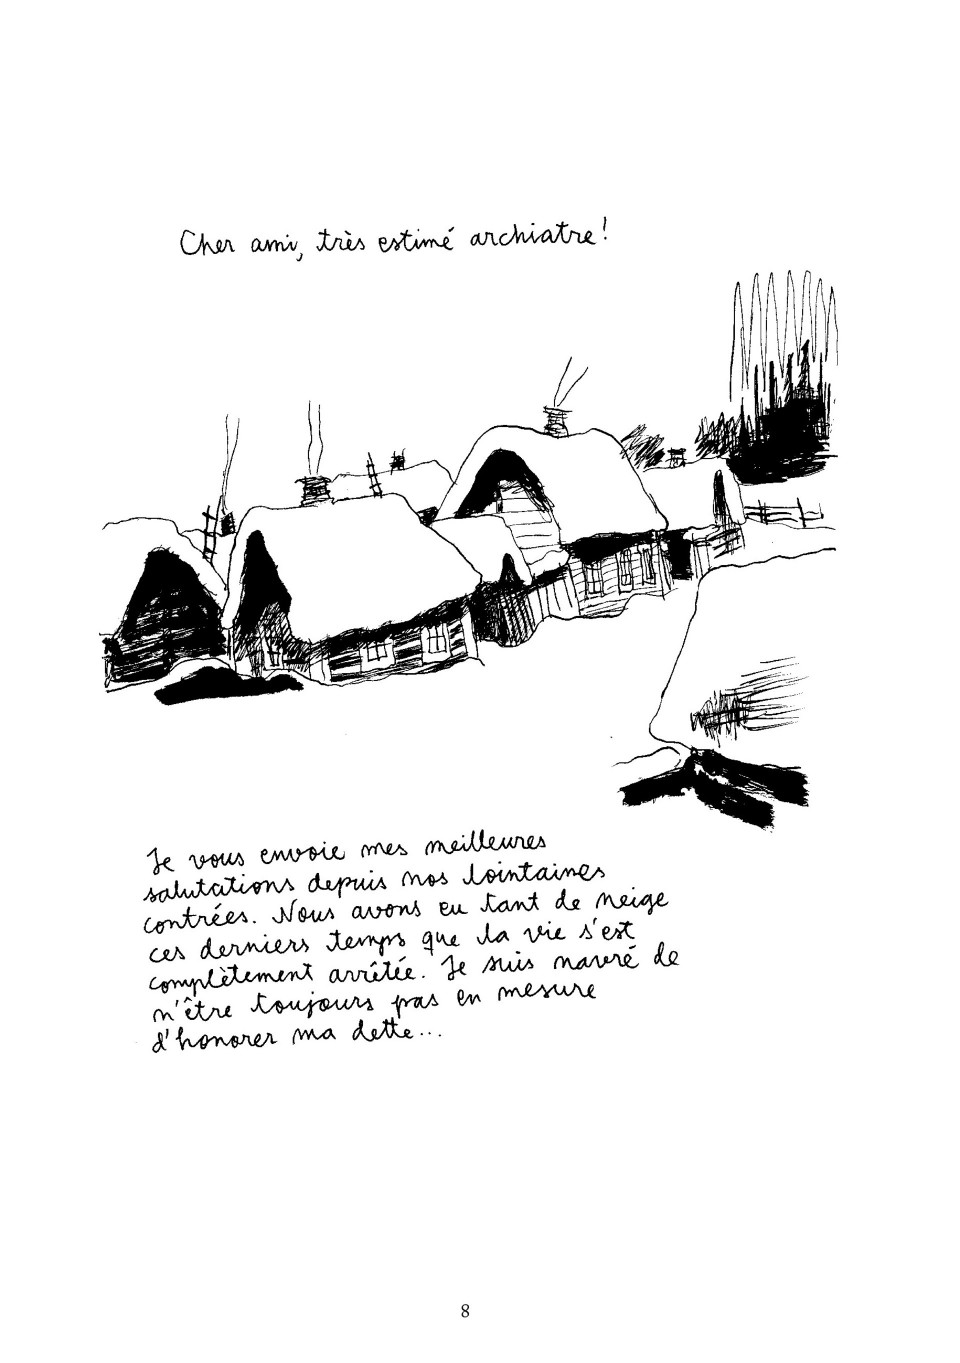 Cher ami, très estimé archiatre!
Je vous envoie mes meilleures
salutations depuis nos lointaines
contrées. Nous avons eu tant de neige
ces derniers temps que la vie s'est
complètement arrêtée. Je suis navré de
n'être toujours pas en mesure
d'honorer ma dette...
8